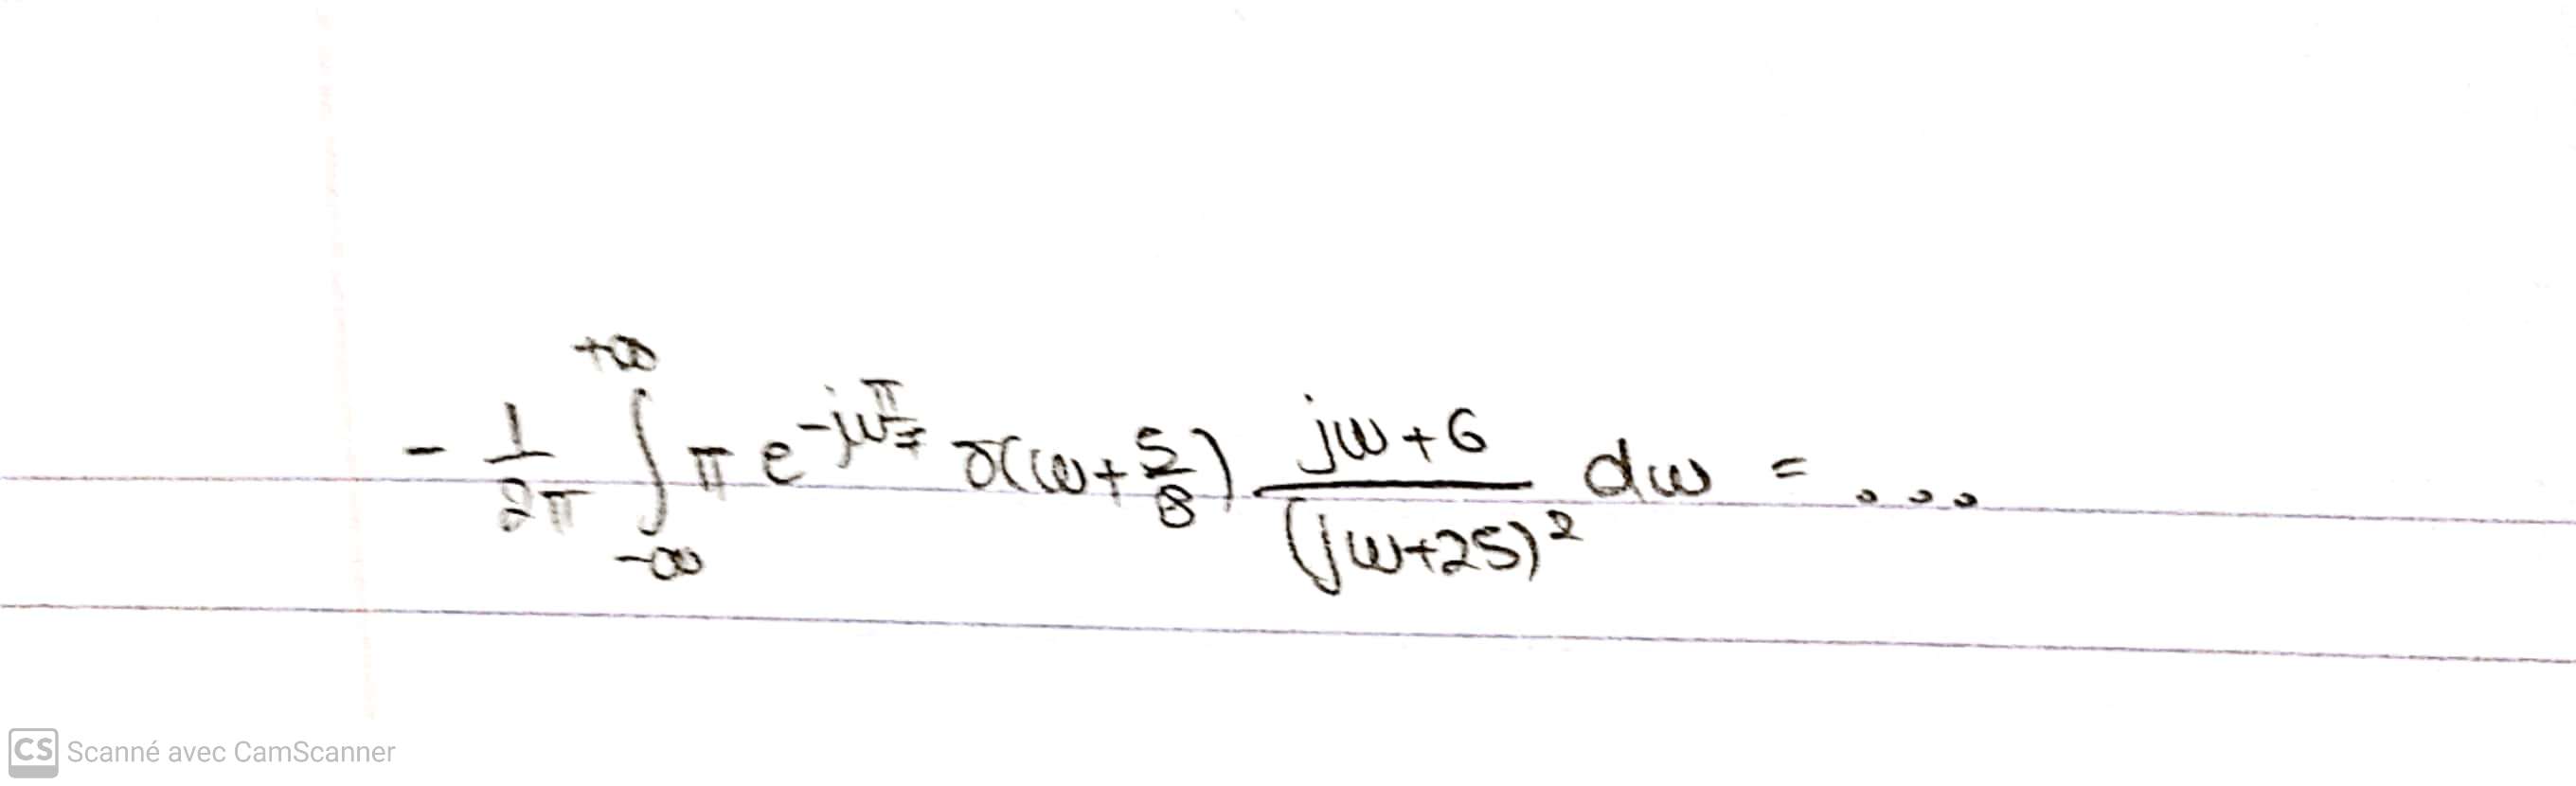 - 1/2π ∫_{-∞}^{+∞} π e^{-jωπ/7} δ(ω+5/8) (jω+6)/(jω+25)² dω = ...
CS Scanné avec CamScanner